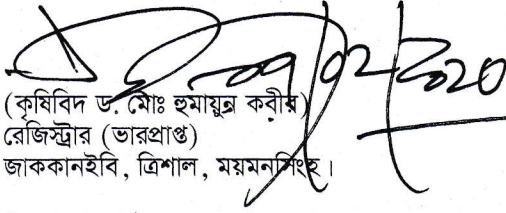 ০৭/০২/২০২০
(কৃষিবিদ ড. মোঃ হুমায়ুন কবীর)
রেজিস্ট্রার (ভারপ্রাপ্ত)
জাককানইবি, ত্রিশাল, ময়মনসিংহ।